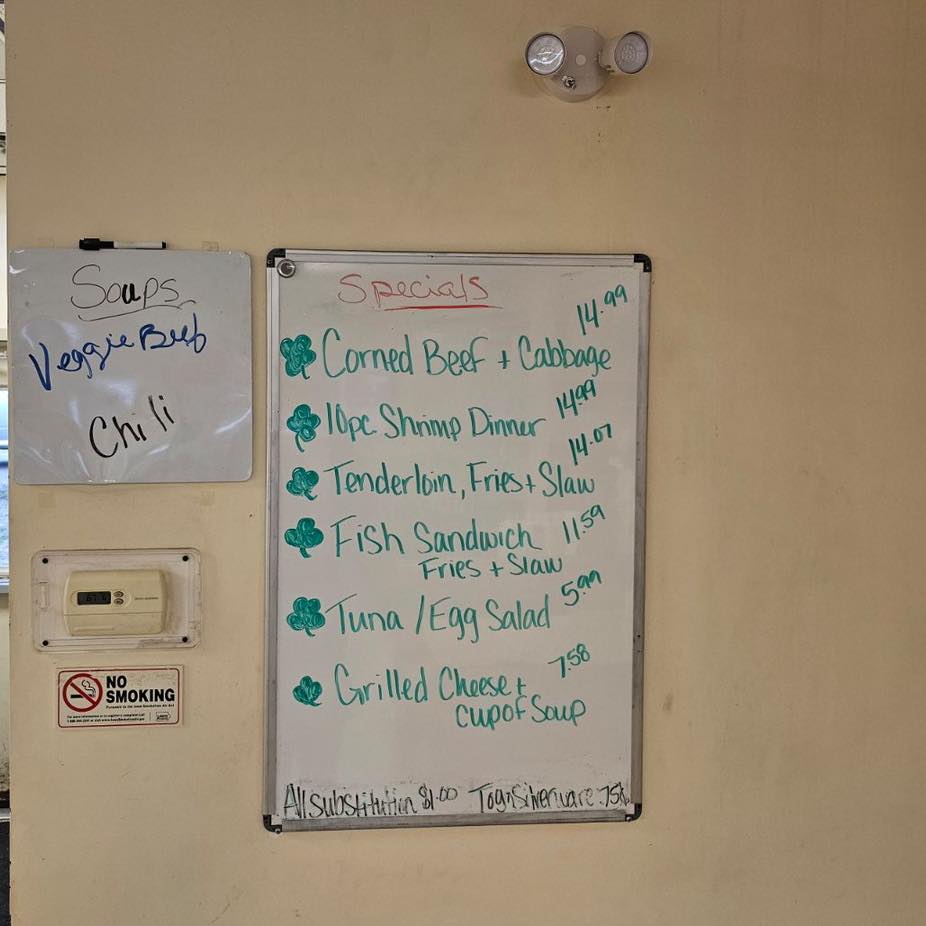 Soups
Veggie Beef
Chili
NO
SMOKING
Specials
Corned Beef + Cabbage 14.99
10pc Shrimp Dinner 14.99
Tenderloin, Fries + Slaw 14.07
Fish Sandwich 11.59
Fries + Slaw
Tuna / Egg Salad 5.99
Grilled Cheese + 7.58
Cup of Soup
All substitution $1.00 Togo Silverware .75¢